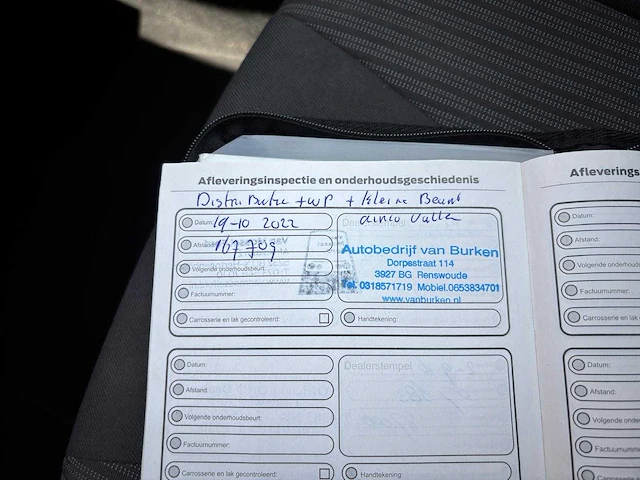 Afleveringsinspectie en onderhoudsgeschiedenis
Distributie + WP + kleine Beurt
Datum: 19-10 2022
Afstand: 167.709
Volgende onderhoudsbeurt:
Factuurnummer:
Carrosserie en lak gecontroleerd:
Dealerstempel
Autobedrijf van Burken
Dorpsstraat 114
3927 BG Renswoude
Tel. 0318571719 Mobiel.0653834701
www.vanburken.nl
Handtekening:
Datum:
Afstand:
Volgende onderhoudsbeurt:
Factuurnummer:
Carrosserie en lak gecontroleerd:
Dealerstempel
Handtekening:
Afleverings
Datum:
Afstand:
Volgende onderhouds
Factuurnummer:
Carrosserie en lak
Datum:
Afstand:
Volgende onder
Factuurnummer
Carrosserie en